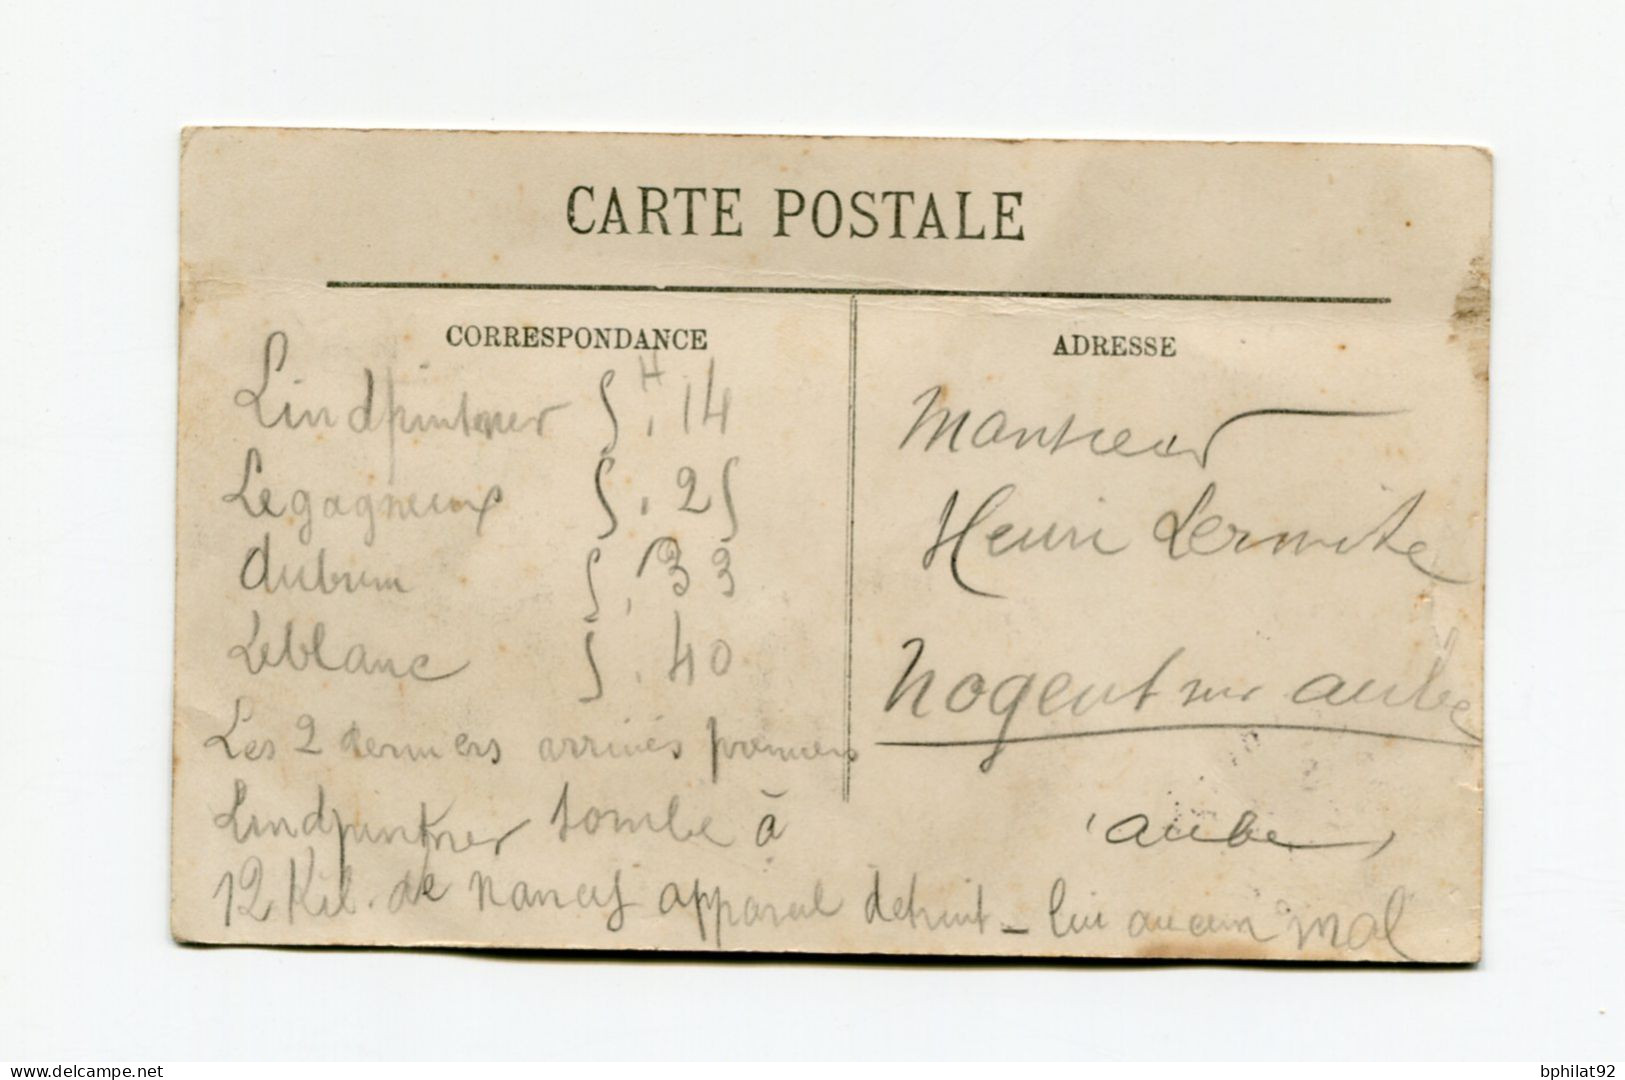 CARTE POSTALE
CORRESPONDANCE
Lindpintner 5H,14
Legagneux 5,25
Aubrun 5,33
Leblanc 5,40
Les 2 derniers arrivés premiers
Lindpintner tombe à
12 Kil. de Nancy appareil detruit – lui aucun mal
ADRESSE
Monsieur
Henri Lermite
Nogent sur aube
(aube)
bphilat92